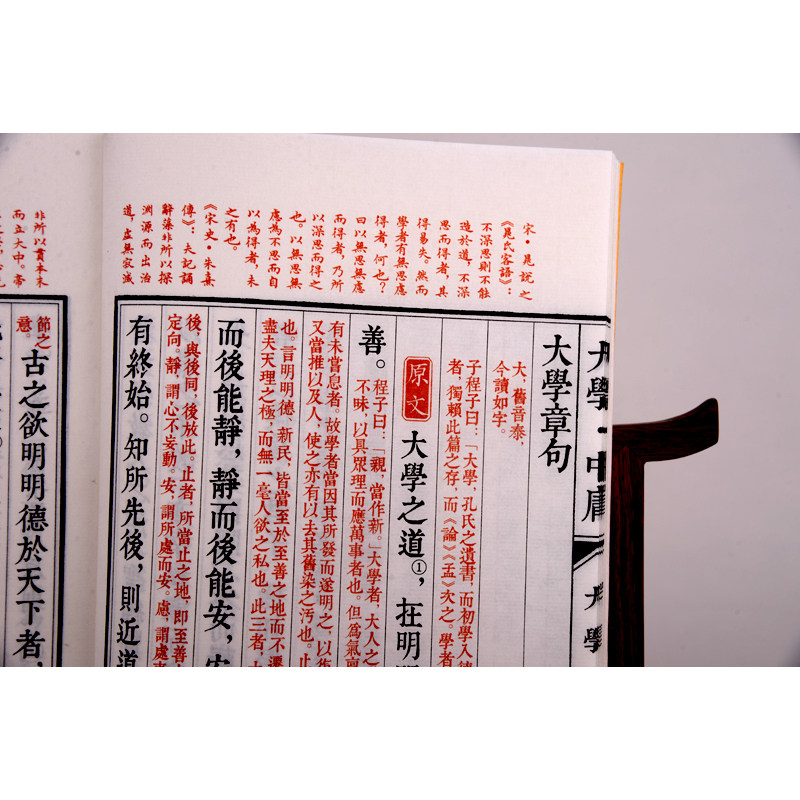 大學·中庸
大學
宋·晁說之
《晁氏客語》：
不深思則不能
造於道，不深
思而得者，其
得易失。然而
學者有無思慮
得者，何也？
曰以無思無慮
而得者，乃所
以深思而得之
也。以無思無
慮為不思而自
以為得者，未
之有也。
《宋史·朱熹
傳》：夫記誦
辭藻非所以探
淵源而出治
道，虛無寂滅
非所以貫本末
而立大中。帝
大學章句
大，舊音泰，
今讀如字。
子程子曰：「大學，孔氏之遺書，而初學入德
者，獨賴此篇之存，而《論》《孟》次之。學者
原文
大學之道①，在明
善。
程子曰：「親，當作新。」大學者，大人之
不昧，以具眾理而應萬事者也。但為氣稟
有未嘗息者。故學者當因其所發而遂明之，以
又當推以及人，使之亦有以去其舊染之污也。止
也。言明明德、新民，皆當至於至善之地而不遷
盡夫天理之極，而無一毫人欲之私也。此三者，大
而後能靜，靜而後能安，安
後，與後同，後放此。止者，所當止之地，即至善
定向。靜，謂心不妄動。安，謂所處而安。慮，謂處事
有終始。知所先後，則近道
節之
意。
古之欲明明德於天下者，